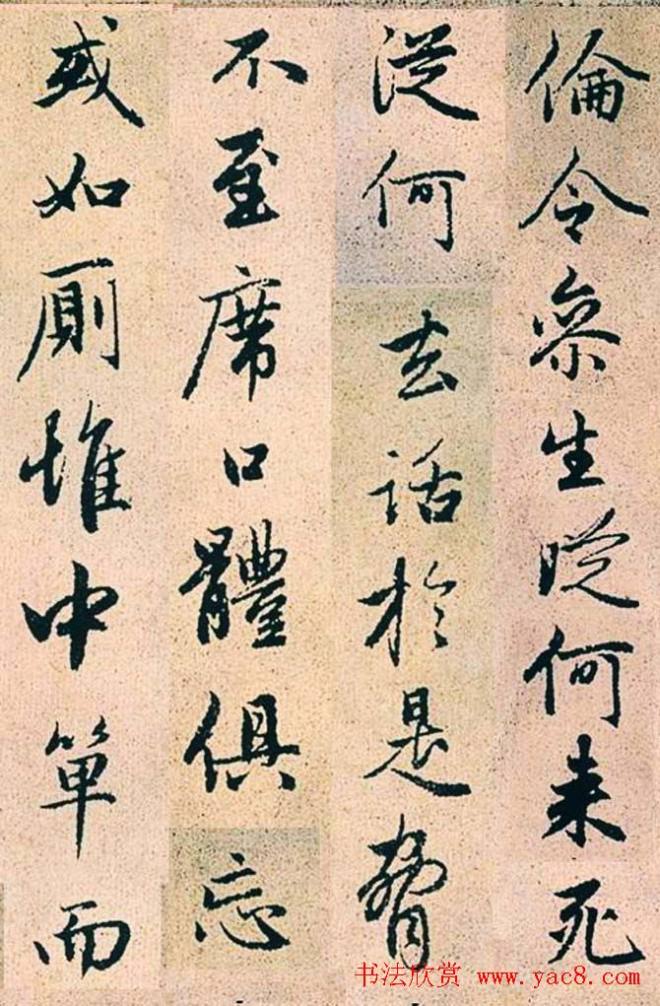 倫令衆生從何来死
從何去話於是脅
不至席口體俱忘
或如廁堆中單而
书法欣赏 www.yac8.com